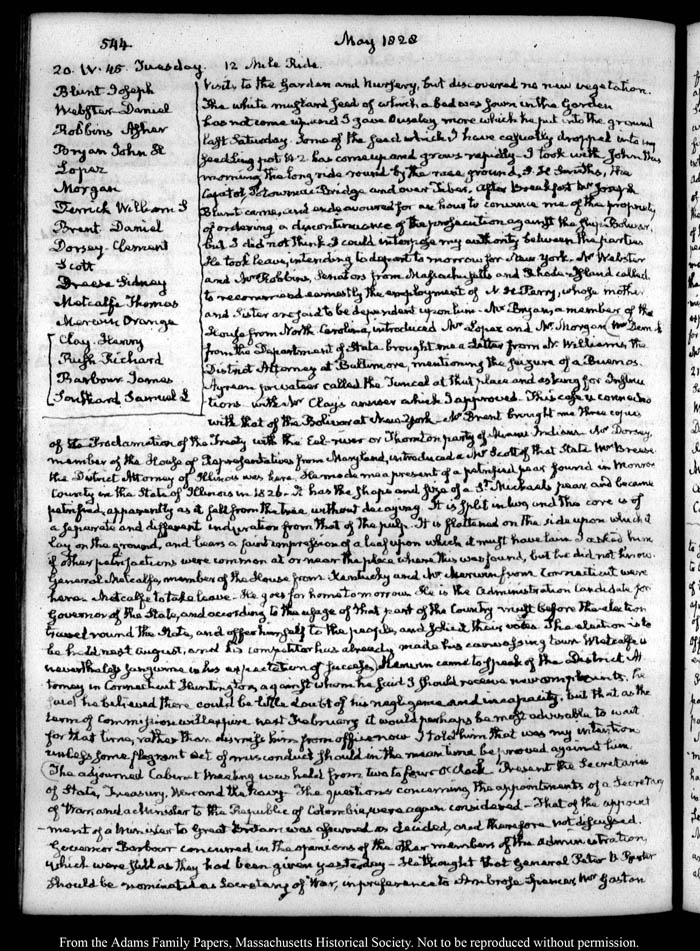 544
May 1828
20. IV:45. Tuesday. 12 Mile Ride.
Blunt Joseph
Webster Daniel
Robbins Asher
Bryan John H
Lopez
Morgan
Derrick William S
Brent Daniel
Dorsey Clement
Scott
Breese Sidney
Metcalfe Thomas
Merwin Orange
Clay Henry
Rush Richard
Barbour James
Southard Samuel L
Visits to the Garden and Nursery, but discovered no new vegetation.
The white mustard seed of which a bed was sown in the Garden
has not come up and I gave Ouseley more which he put into the ground
last Saturday. Some of the seed which I have casually dropped into my
seedling pot N. 2 has come up and grows rapidly. I took with John this
morning the long ride round by the race ground, S. H. Smiths, the
Capitol, Potowmac Bridge and over Tiber. After Breakfast Mr Joseph
Blunt came, and endeavoured for an hour to convince me of the propriety
of ordering a discontinuance of the prosecution against the ship Bolivar,
but I did not think I could interpose my authority between the parties
He took leave, intending to depart to morrow for New York. Mr Webster
and Mr Robbins, Senators from Massachusetts and Rhode-Island called
to recommend earnestly the employment of N. H. Perry, whose mother
and Sister are said to be dependent upon him. Mr Bryan, a member of the
House from North Carolina, introduced Mr Lopez and Mr Morgan. Mr
from the Department of State brought me a Letter from N. Williams, the
District Attorney at Baltimore, mentioning the seizure of a Buenos
Ayrean privateer called the Juncal at that place and asking for Instruc
tions with Mr Clay's answer which I approved. This case is connected
with that of the Bolivar at New-York. Mr Brent brought me three copies
of the Proclamation of the Treaty with the Eel-river or Thornton party of Miami Indians. Mr Dorsey,
member of the House of Representatives from Maryland, introduced a Mr Scott of that State Mr Breese
the District Attorney of Illinois was here. He made me a present of a petrified pear found in Monroe
County in the State of Illinois in 1826. It has the shape and size of a St. Michaels pear and became
petrified, apparently as it fell from the tree without decaying. It is split in two, and the core is of
a separate and different induration from that of the pulp. It is flattened on the side upon which it
lay on the ground, and bears a faint impression of a leaf upon which it must have lain. I asked him
if other petrifactions were common at or near the place where this was found, but he did not know.
General Metcalfe, member of the House from Kentucky and Mr Merwin from Connecticut were
here. Metcalfe to take leave. He goes for home to morrow. He is the Administration candidate for
Governor of the State, and according to the usage of that part of the Country must before the election
travel round the State, and offer himself to the people, and solicit their votes. The election is to
be held next August, and his competitor has already made his canvassing tour. Metcalfe is
nevertheless sanguine in his expectation of success. Merwin came to speak of the District At
torney in Connecticut Huntington, against whom he said I should receive new complaints. he
said he believed there could be little doubt of his negligence and incapacity. but that as the
term of Commission will expire next February it would perhaps be most advisable to wait
for that time, rather than dismiss him from office now. I told him that was my intention
unless some flagrant act of misconduct should in the mean time be proved against him.
The adjourned Cabinet Meeting was held from two to four O'Clock. Present the Secretaries
of State, Treasury, War and the Navy. The questions concerning the appointments of a Secretary
of War, and a Minister to the Republic of Colombia, were again considered. That of the appoint
-ment of a Minister to Great Britain was assumed as decided, and therefore not discussed.
Governor Barbour concurred in the opinions of the other members of the administration,
which were still as they had been given yesterday. He thought that General Peter B. Porter
should be nominated as Secretary of War, in preference to Ambrose Spencer, Mr Gaston
From the Adams Family Papers, Massachusetts Historical Society. Not to be reproduced without permission.